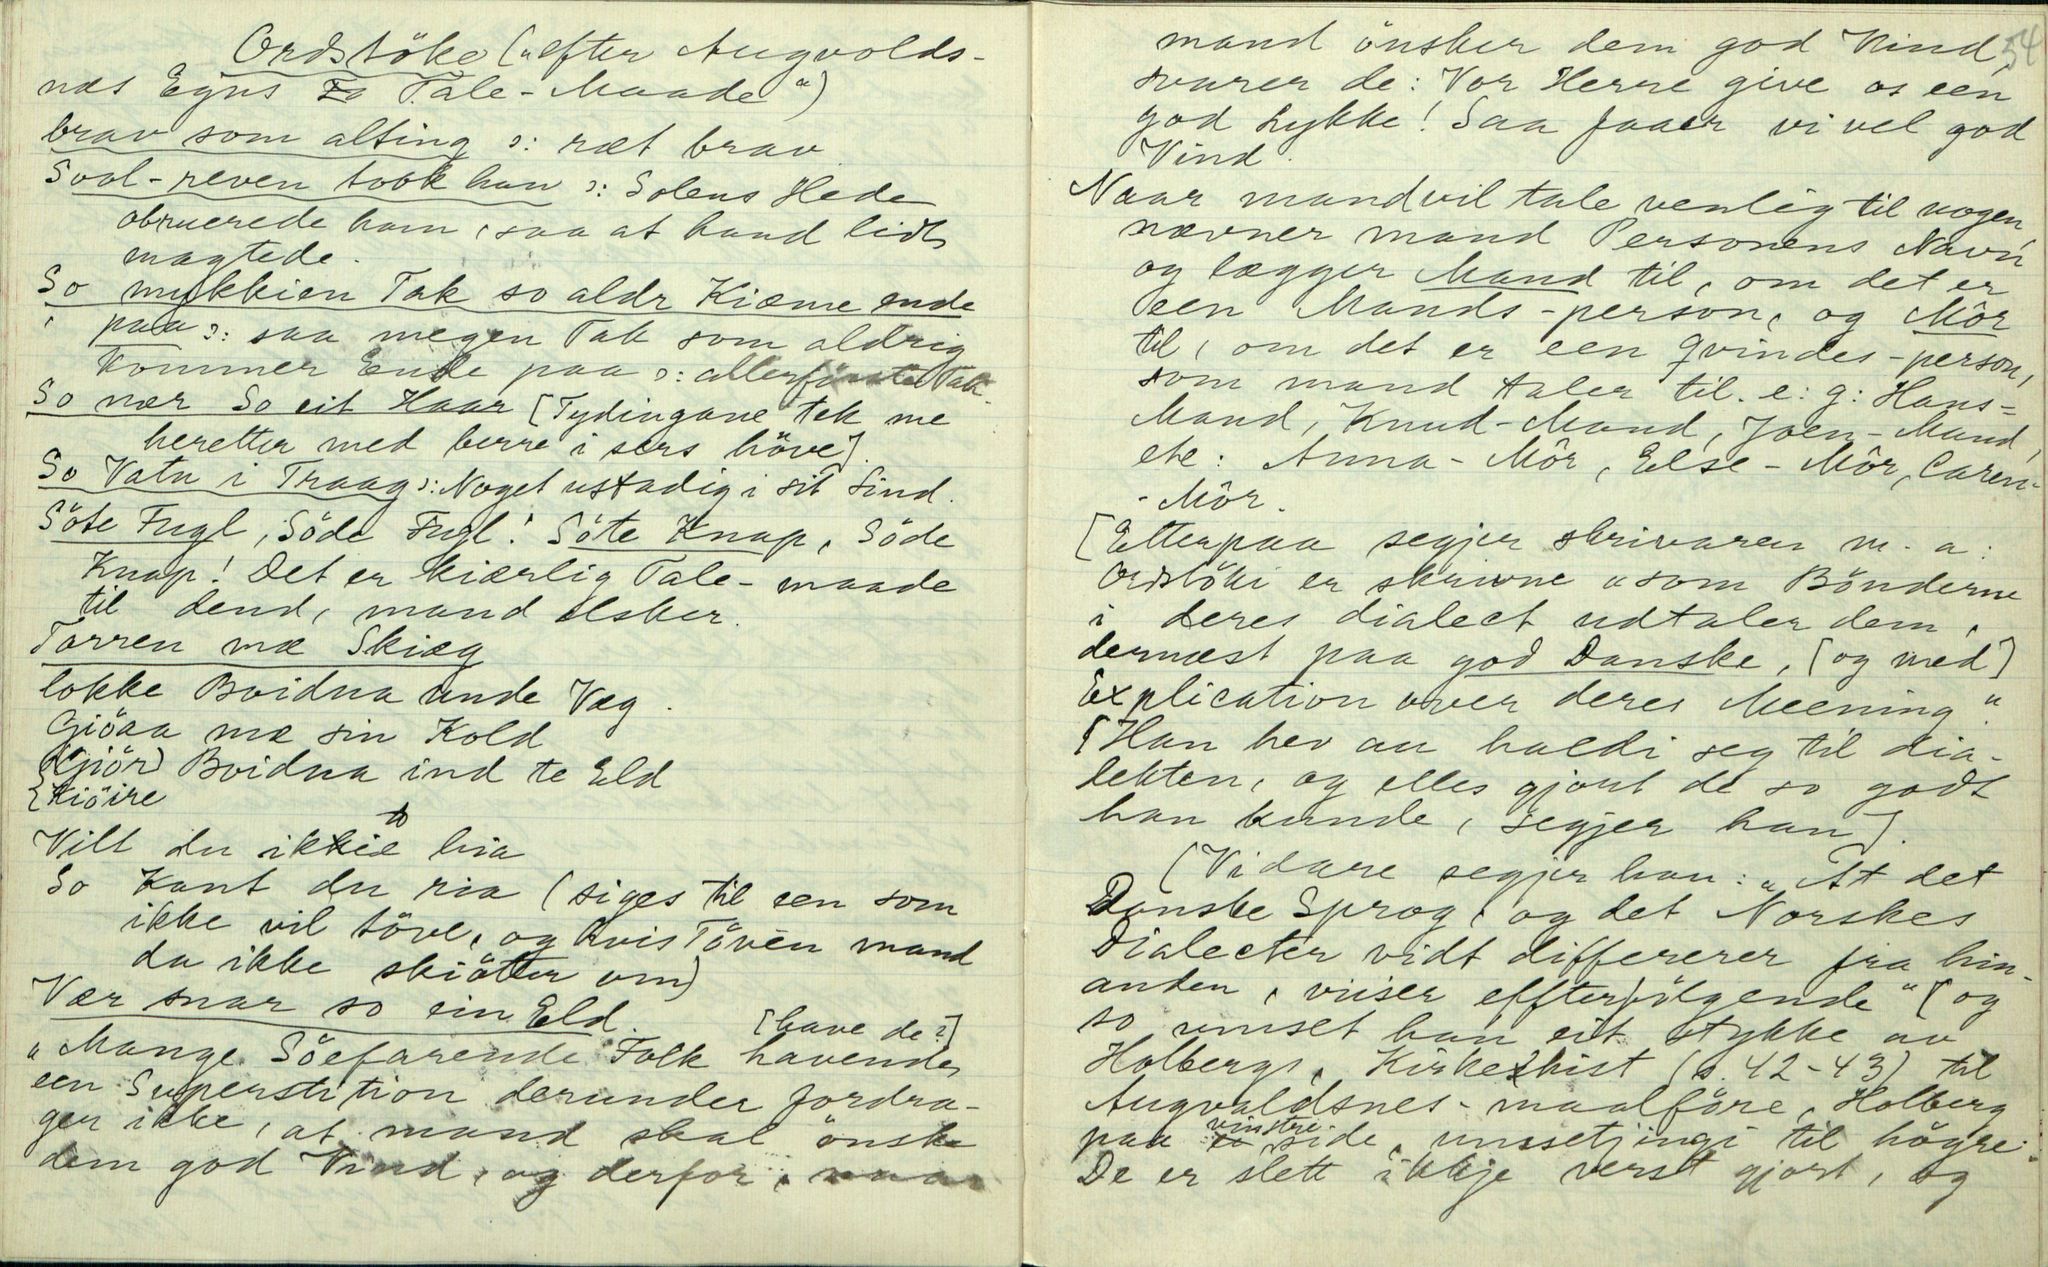 Ordstöke („efter Augvolds-
næs Egns Tale-Maade“)
brav som alting ɔ: ræt brav
Sool-reven took han ɔ: Solens Hede
obruerede ham, saa at hand lidt
magtede.
So mykkien Tak so aldr Kiæme ende
paa ɔ: saa megen Tak som aldrig
Kommer Ende paa ɔ: allerfinste Tak.
So nær So eit Haar [Tydingane tek me
heretter med berre i sers höve].
So Vatn i Traag ɔ: Noget ustadig i sit Sind.
Söte Fugl, Söde Fugl! Söte Knap, Söde
Knap! Det er kiærlig Tale-maade
til dend, mand elsker.
Torren mæ Skiæg
lokke Boidna unde Væg.
Giöaa mæ sin Kold
(Giör) Boidna ind te Eld
{Kiöire
Vilt du ikkie bia
So Kant du ria (siges til een som
ikke vil töve, og hvis Töven mand
da ikke skiötter om)
Vær snar so ein Eld.
[have de?]
„Mange Söefarende Folk havende
een Superstition derunder fordra-
ger ikke, at mand skal önske
dem god Vind, og derfor, naar
54
mand önsker dem god Vind,
svarer de: Vor Herre give os een
god Lykke! Saa faaer vi vel god
Vind.
Naar mand vil tale venlig til nogen,
nævner mand Personens Navn
og lægger Mand til, om det er
een Mands-person, og Môr
til, om det er een Qvindes-person,
som mand taler til. e: g: Hans=
Mand, Knud-Mand, Joen-Mand,
etc: Anna-Môr, Else-Môr, Caren-
-Môr.
[Etterpaa segjer skrivaren m. a:
Ordstöki er skrivne „som Bönderne
i deres dialect udtaler dem,
dernæst paa god Danske, [og med]
Explication over deres Meening“.
[Han hev au haldi seg til dia-
lekten, og elles gjort de so godt
han kunde, segjer han].
(Vidare segjer han: „At det
Danske Sprog, og det Norskes
Dialecter vidt differerer fra hin-
anden, viiser effterfölgende“ [og
so umset han eit stykke av
Holbergs, Kirkehist (s. 42-43) til
Augvaldsnes-maalföre, Holberg
paa vinstre side, umsetjingi til högre.
De er slett ikkje verst gjort, og